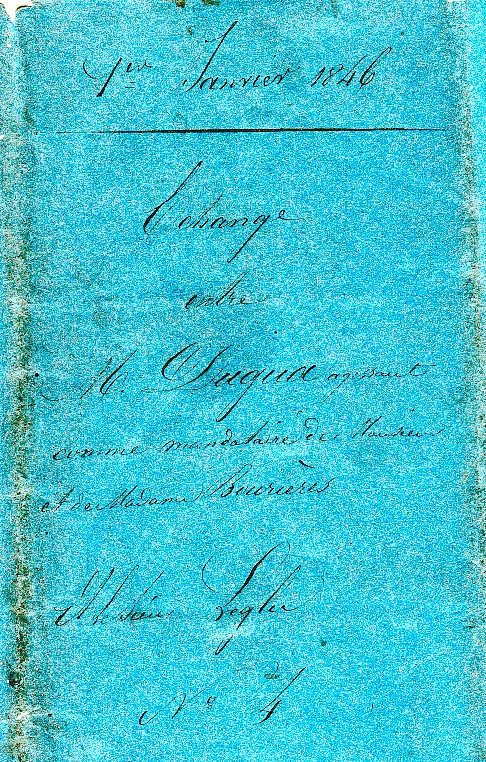 1er Janvier 1846
Echange
entre
M. Duqua agissant
comme mandataire de Monsieur
et de Madame Bourières
Et le Sieur Legler
No 4